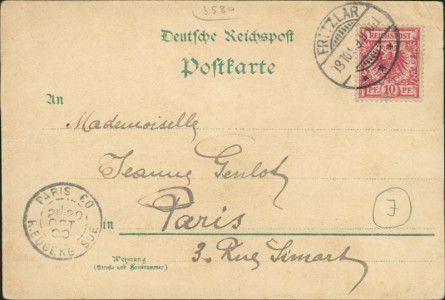 3580
Deutsche Reichspost
Postkarte
FRITZLAR
REICHSPOST
PF. 10 PF.
An
Mademoiselle
Jeanne Genlot
PARIS 60
OCT
R. EUGENE SUE
in Paris
7
Wohnung
(Straße und Hausnummer)
3. Rue Simart